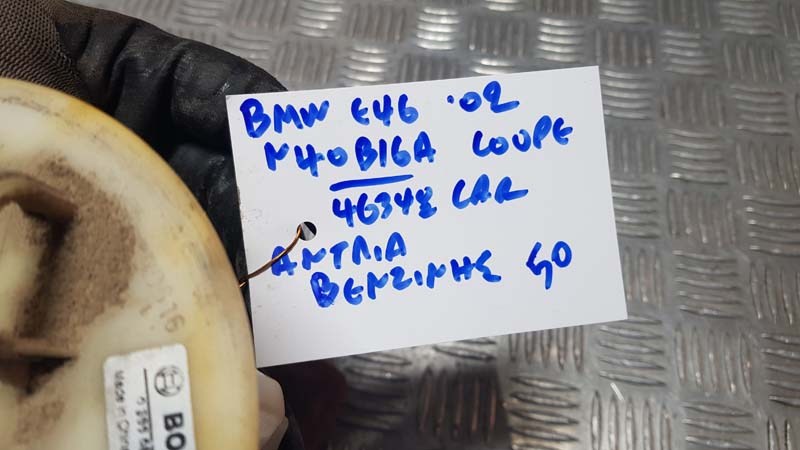 BMW E46 '02
N40B16A COUPE
46342 CAR
ΑΝΤΛΙΑ
ΒΕΝΖΙΝΗΣ 50
BO
Made in Chin